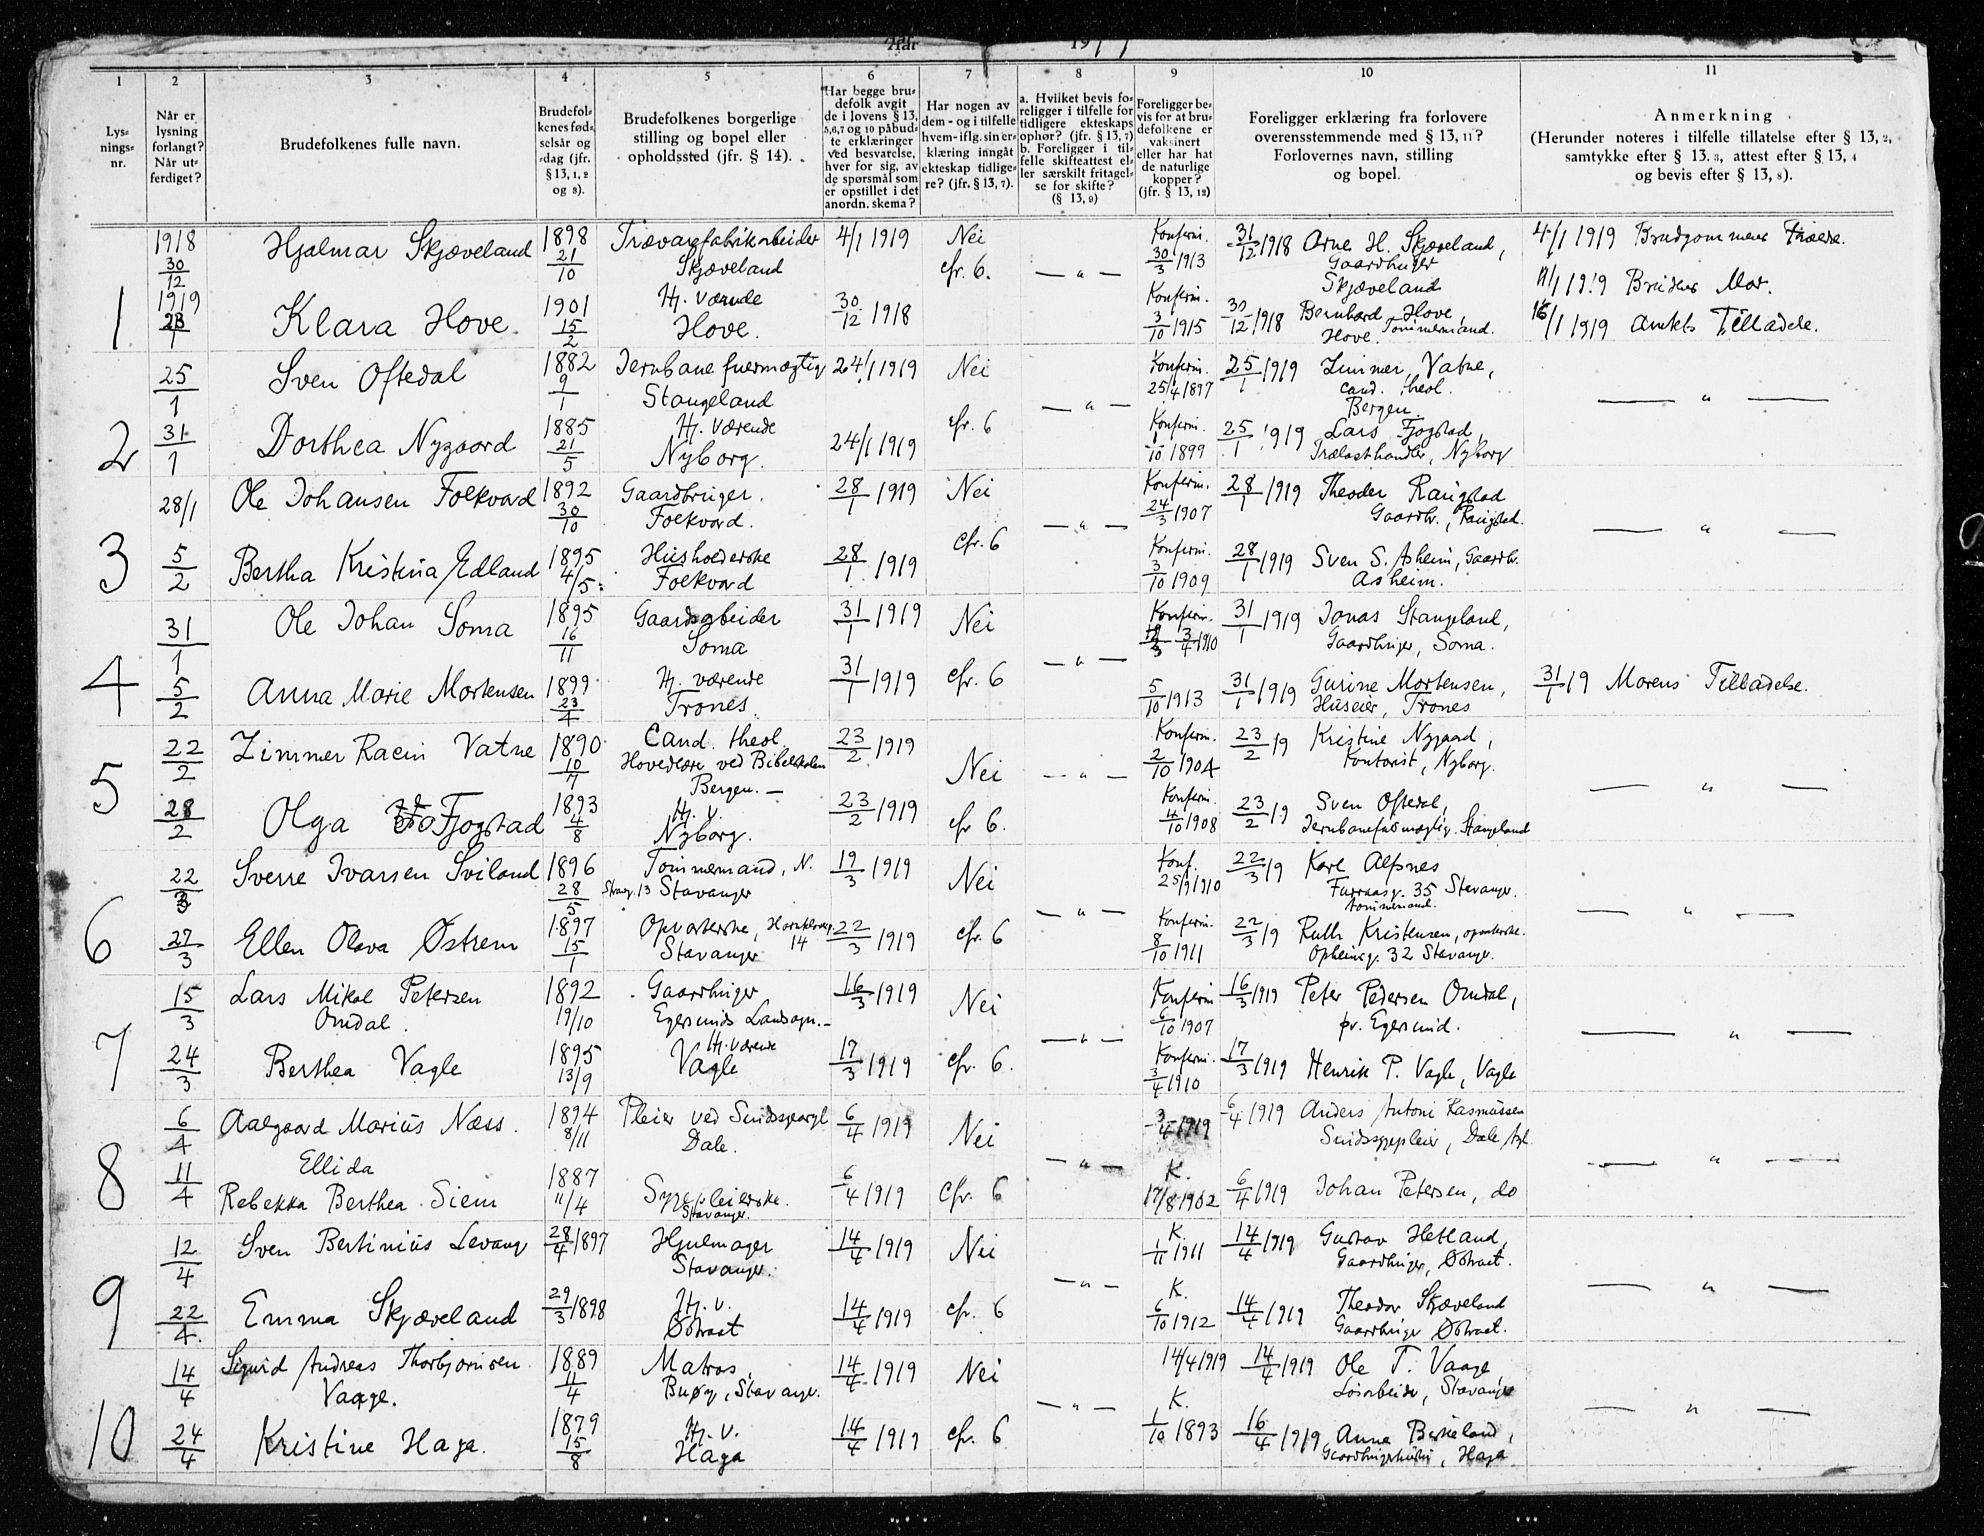 Aar 19
1
2
3
4
5
6
7
8
9
10
11
Lys-
nings-
nr.
Når er
lysning
forlangt?
Når ut-
ferdiget?
Brudefolkenes fulle navn.
Brudefol-
kenes fød-
selsår og
-dag (jfr.
§ 13, 1, 2
og 3).
Brudefolkenes borgerlige
stilling og bopel eller
opholdssted (jfr. § 14).
Har begge bru-
defolk avgit
de i lovens § 13,
5,6,7 og 10 påbud-
te erklæringer
ved besvarelse,
hver for sig, av
de spørsmål som
er opstillet i det
anordn. skema?
Har nogen av
dem - og i tilfelle
hvem - iflg. sin er-
klæring inngåt
ekteskap tidlige-
re? (jfr. § 13, 7).
a. Hvilket bevis fo-
religger i tilfelle for
tidligere ekteskaps
ophør? (jfr. § 13, 7)
b. Foreligger i til-
felle skifteattest el-
ler særskilt fritagel-
se for skifte?
(§ 13, 9)
Foreligger be-
vis for at bru-
defolkene er
vaksinert
eller har hat
de naturlige
kopper?
(jfr. § 13, 12)
Foreligger erklæring fra forlovere
overensstemmende med § 13, 11?
Forlovernes navn, stilling
og bopel.
Anmerkning
(Herunder noteres i tilfelle tillatelse efter § 13, 2,
samtykke efter § 13. 3, attest efter § 13, 4
og bevis efter § 13, 8).
1
1918 30/12
1919 23/1
Hjalmar Skjæveland 1898 21/10 Trævarefabrikarbeider Skjæveland 4/1 1919 Nei Konfirm. 30/3 1913 31/12 1918 Arne H. Skjæveland, Gaardbruger Skjæveland 4/1 1919 Brudgommens
Klara Hove. 1901 15/2 Hj. værende Hove. 30/12 1918 cfr. 6. — " — Konfirm. 3/10 1915 30/12 1918 Bernhard Hove Tømmermand. Hove. Brudens Mor.
16/1 1919 Amtets Tilladelse.
2
25/1
31/1
Sven Oftedal 1882 9/1 Jernbanefuermægtig Stangeland 24/1 1919 Nei Konfirm. 25/4 1897 25/1 1919 Zimmer Vatne, cand. theol. Bergen.
Dorthea Nygaard 1885 21/5 Hj. værende Nyborg. 24/1 1919 cfr. 6 — " — Konfirm. 1/10 1899 25/1 1919 Lars Fjogstad, Trælasthandler, Nyborg — " —
3
28/1
5/2
Ole Johansen Folkvord 1892 30/10 Gaardbruger. Folkvord. 28/1 1919 Nei Konfirm. 24/3 1907 28/1 1919 Theodor Rangstad Gaardbr., Rangstad.
Bertha Kristina Edland 1895 4/5 Husholderske Folkvord 28/1 1919 cfr. 6 — " — Konfirm. 3/10 1909 28/1 1919 Sven S. Asheim, Gaardbr. Asheim. — " —
4
31/1
5/2
Ole Johan Soma 1895 16/11 Gaardsarbeider Soma 31/1 1919 Nei Konfirm. 3/4 1910 31/1 1919 Jonas Stangeland, Gaardbruger, Soma.
Anna Marie Mortensen 1899 23/4 Hj. værende Trones. 31/1 1919 cfr. 6 — " — 5/10 1913 31/1 1919 Gurine Mortensen, Huseier, Trones 31/1 19 Morens Tilladelse.
5
22/2
28/2
Zimmer Racin Vatne 1890 10/7 Cand. theol. Hovedlære ved Bibelskolen Bergen. — 23/2 1919 Nei — " — Konfirm. 2/10 1904 23/2 19 Kristine Nygaard, Kontorist, Nyborg.
Olga Fjogstad 1893 4/8 Hj. v. Nyborg. 23/2 1919 cfr 6. Konfirm. 4/10 1908 23/2 19 Sven Oftedal, Jernbanefulmægtig. Stangeland — " —
6
22/3
27/3
Sverre Ivarsen Sviland 1896 28/5 Tømmermand, N. 13 Stavanger 19/3 1919 Nei Konf. 25/9 1910 22/3 19 Karl Alfsnes Furraasg. 35 Stavanger. tømmermand.
Ellen Olava Østrem 1897 15/1 Opvarterske, 14 Stavanger 22/3 1919 cfr. 6 — " — Konfirm. 8/10 1911 22/3 19 Ruth Kristensen, opvarterske. Opheimsg. 32 Stavanger. — " —
7
15/3
24/3
Lars Mikal Petersen Omdal. 1892 19/10 Gaardbruger Egersunds Landsogn. — 16/3 1919 Nei Konfirm 6/10 1907 16/3 1919 Peter Pedersen Omdal, pr. Egersund.
Berthea Vagle 1895 13/9 Hj. værende Vagle 17/3 1919 cfr. 6. — " — Konfirm. 3/4 1910 17/3 1919 Henrik P. Vagle, Vagle — " —
8
6/4
11/4
Aalgaard Marius Næss. 1894 8/11 Pleier ved Sindssygeasyl Dale. 6/4 1919 Nei 3/4 1919 6/4 1919 Anders Antoni Rasmussen Sindssygepleier, Dale Asyl.
Ellida
Rebekka Berthea Siem 1887 11/4 Sygepleierske. Stavanger. 6/4 1919 Cfr. 6 — " — K. 17/8 1902 6/4 1919 Johan Petersen, do — " —
9
12/4
22/4.
Sven Bertinius Levang 28/4 1897 Hjulmager Stavanger. 14/4 1919 Nei K. 1/11 1911 14/4 1919 Gustav Hetland, Gaardbruger, Østraat.
Emma Skjæveland 29/3 1898 Hj. v. Østraat 14/4 1919 cfr. 6 — " — K. 6/10 1912 14/4 1919 Theodor Skjæveland Gaardbruger Østraat. — " —
10
14/4
24/4
Sigurd Andreas Thorbjørnsen Vaage. 1889 11/4 Matros, Buøy, Stavanger. 14/4 1919 Nei 14/4 1919 14/4 1919 Ole T. Vaage Løsarbeider, Stavanger
Kristine Haga. 1879 15/8 Hj. v. Haga 14/4 1919 cfr. 6 — " — K. 1/10 1893 16/4 1919 Anna Berkeland, Haga — " —